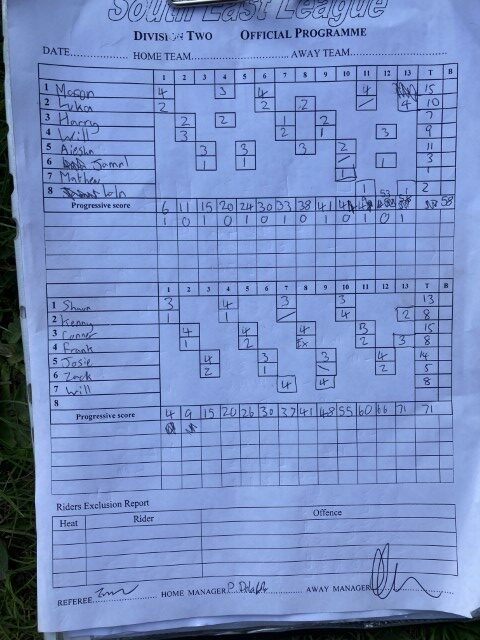 South East League
DIVISION TWO OFFICIAL PROGRAMME
DATE............ HOME TEAM.................... AWAY TEAM....................
1 2 3 4 5 6 7 8 9 10 11 12 13 T B
1 Mason 4 3 4 4 15
2 Luka 2 2 2 / 4 10
3 Harry 2 2 1 2 7
4 Will 3 2 1 3 9
5 Aiesha 3 5 3 2 11
6 Jamal 1 1 / 1 3
7 Mathew 1 1
8 1 1 2
Progressive score 6 11 15 20 24 30 33 38 41 53 58
1 0 1 0 1 0 1 0 1 0 1 0 1
1 2 3 4 5 6 7 8 9 10 11 12 13 T B
1 Shaun 3 4 3 3 13
2 Kenny 1 1 / 4 2 8
3 Conner 4 4 4 3 15
4 Frank 1 2 Ex 2 3 8
5 Josie 4 3 3 4 14
6 Zack 2 1 \ 2 5
7 Will 4 4 8
8
Progressive score 4 9 15 20 26 30 37 41 48 55 60 66 71 71
Riders Exclusion Report
Heat Rider Offence
REFEREE............ HOME MANAGER............ AWAY MANAGER............